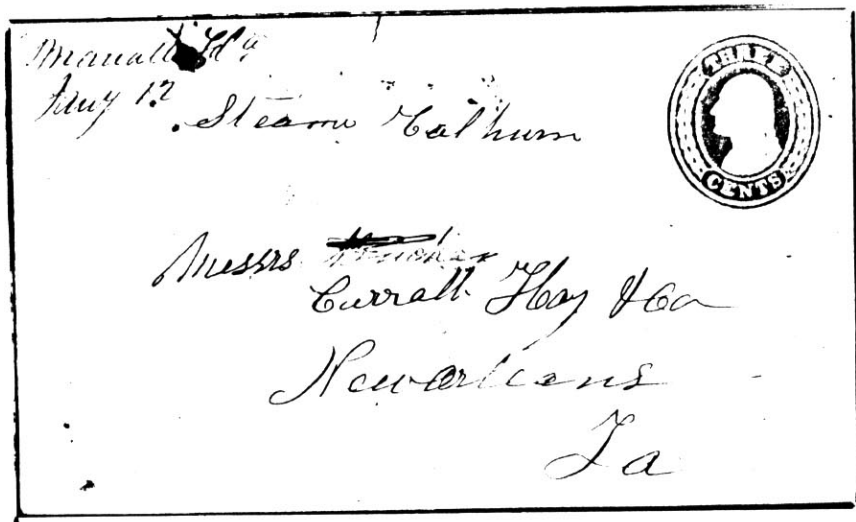 Manatee Fl a
Jany 12
Steamr Calhoun
THREE
CENTS
Messrs
Carrall Hoy & Co
Neworleans
La